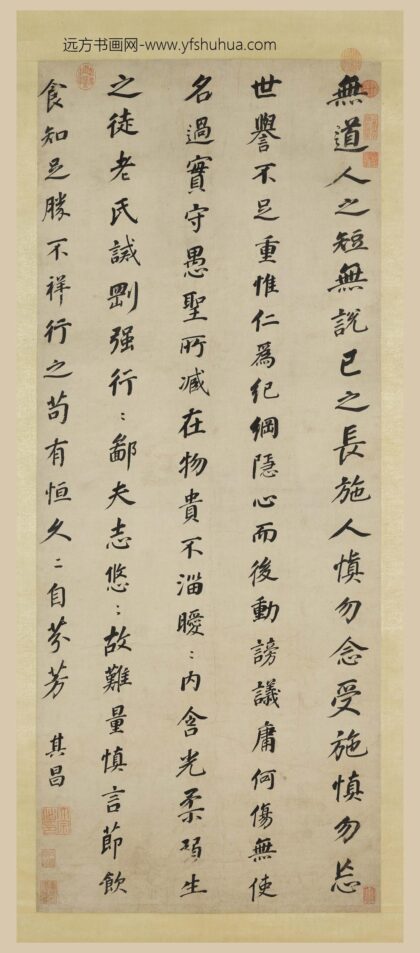 远方书画网-www.yfshuhua.com
無道人之短無說己之長施人慎勿念受施慎勿忘
世譽不足重惟仁爲紀綱隱心而後動謗議庸何傷無使
名過實守愚聖所臧在物貴不淄曖〻內含光柔弱生
之徒老氏誡剛强行〻鄙夫志悠〻故難量慎言節飲
食知足勝不祥行之苟有恒久〻自芬芳 其昌